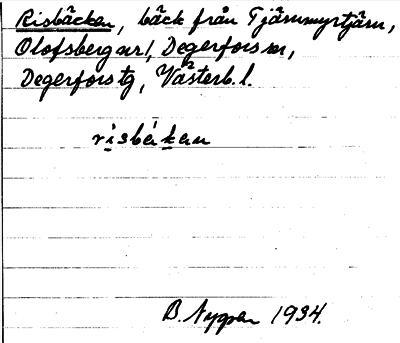 Risbäcken, bäck från Tjärnmyrtjärn,
Olofsberg nr 1, Degerfors sn,
Degerfors tg, Västerb. l.
risbäkan
B. Nygren 1934.